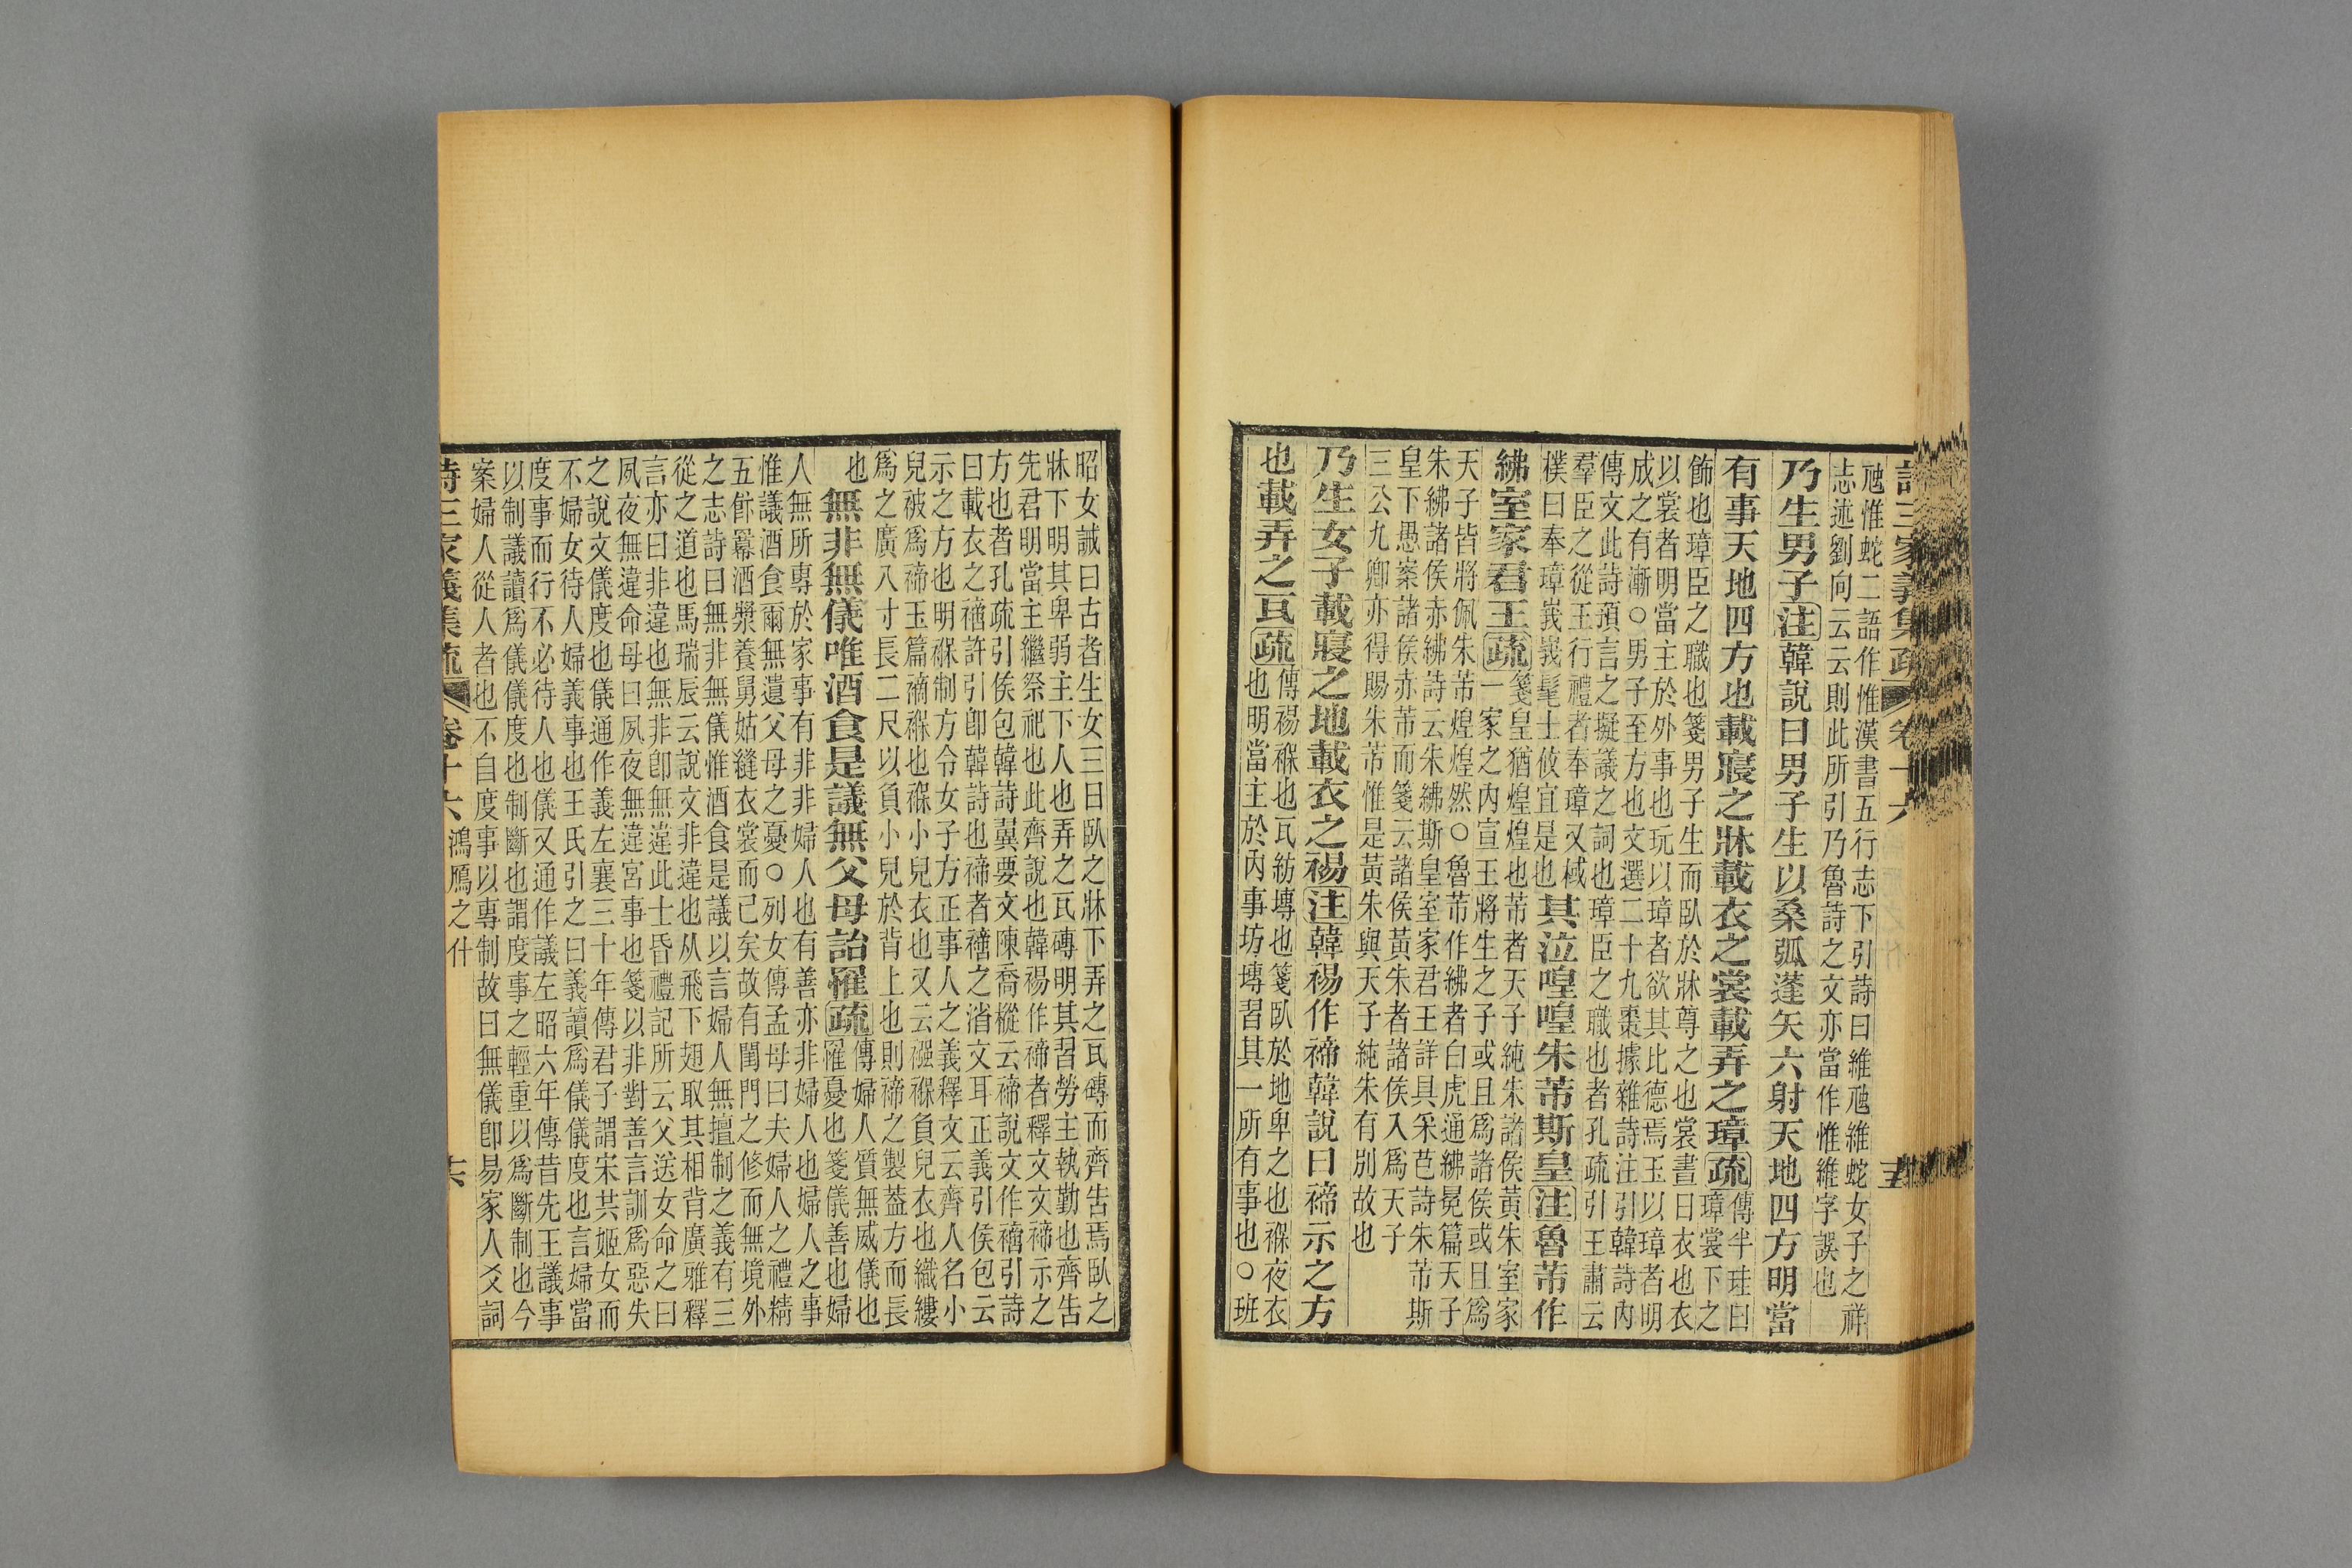 詩三家義集疏 卷十六 十五
虺惟蛇二語作惟漢書五行志下引詩曰維虺維蛇女子之祥
志述劉向云云則此所引乃魯詩之文亦當作惟維字誤也
乃生男子注韓說曰男子生以桑弧蓬矢六射天地四方明當
有事天地四方也載寢之牀載衣之裳載弄之璋疏傳半珪曰
璋裳下之
飾也璋臣之職也箋男子生而臥於牀尊之也裳晝日衣也衣
以裳者明當主於外事也玩以璋者欲其比德焉玉以璋者明
成之有漸○男子至方也文選二十九棗據雜詩注引韓詩內
傳文此詩預言之擬議之詞也璋臣之職也者孔疏引王肅云
羣臣之從王行禮者奉璋又棫
樸曰奉璋峩峩髦士攸宜是也
其泣喤喤朱芾斯皇注魯芾作
紼室家君王疏箋皇猶煌煌也芾者天子純朱諸侯黃朱室家
一家之內宣王將生之子或且爲諸侯或且爲
天子皆將佩朱芾煌煌然○魯芾作紼者白虎通紼冕篇天子
朱紼諸侯赤紼詩云朱紼斯皇室家君王詳具采芑詩朱芾斯
皇下愚案諸侯亦芾而箋云諸侯黃朱者諸侯入爲天子
三公九卿亦得賜朱芾惟是黃朱與天子純朱有別故也
乃生女子載寢之地載衣之裼注韓裼作禘韓說曰禘示之方
也載弄之瓦疏傳裼褓也瓦紡塼也箋臥於地卑之也褓夜衣
也明當主於內事坊塼習其一所有事也○班
昭女誡曰古者生女三日臥之牀下弄之瓦磚而齊告焉臥之
牀下明其卑弱主下人也弄之瓦磚明其習勞主執勤也齊告
先君明當主繼祭祀也此齊說也韓裼作禘者釋文文禘示之
方也者孔疏引侯包韓詩翼要文陳喬樅云禘說文作禣引詩
曰載衣之禣許引卽韓詩也禘者禣之渻文耳正義引侯包云
示之方也明褓制方令女子方正事人之義釋文云齊人名小
兒被爲禘玉篇禣褓也褓小兒衣也又云襁褓負兒衣也織縷
爲之廣八寸長二尺以負小兒於背上也則禘之製蓋方而長
也
無非無儀唯酒食是議無父母詒罹疏傳婦人質無威儀也
罹憂也箋儀善也婦
人無所專於家事有非非婦人也有善亦非婦人也婦人之事
惟議酒食爾無遺父母之憂○列女傳孟母曰夫婦人之禮精
五飰冪酒漿養舅姑縫衣裳而已矣故有閨門之修而無境外
之志詩曰無非無儀惟酒食是議以言婦人無擅制之義有三
從之道也馬瑞辰云說文非違也从飛下翅取其相背廣雅釋
言亦曰非違也無非卽無違此士昏禮記所云父送女命之曰
夙夜無違命母曰夙夜無違宮事也箋以非對善言訓爲惡失
之說文儀度也儀通作義左襄三十年傳君子謂宋共姬女而
不婦女待人婦義事也王氏引之曰義讀爲儀儀度也言婦當
度事而行不必待人也儀又通作議左昭六年傳昔先王議事
以制議讀爲儀儀度也制斷也謂度事之輕重以爲斷制也今
案婦人從人者也不自度事以專制故曰無儀卽易家人爻詞
詩三家義集疏 卷十六 鴻鴈之什 十六